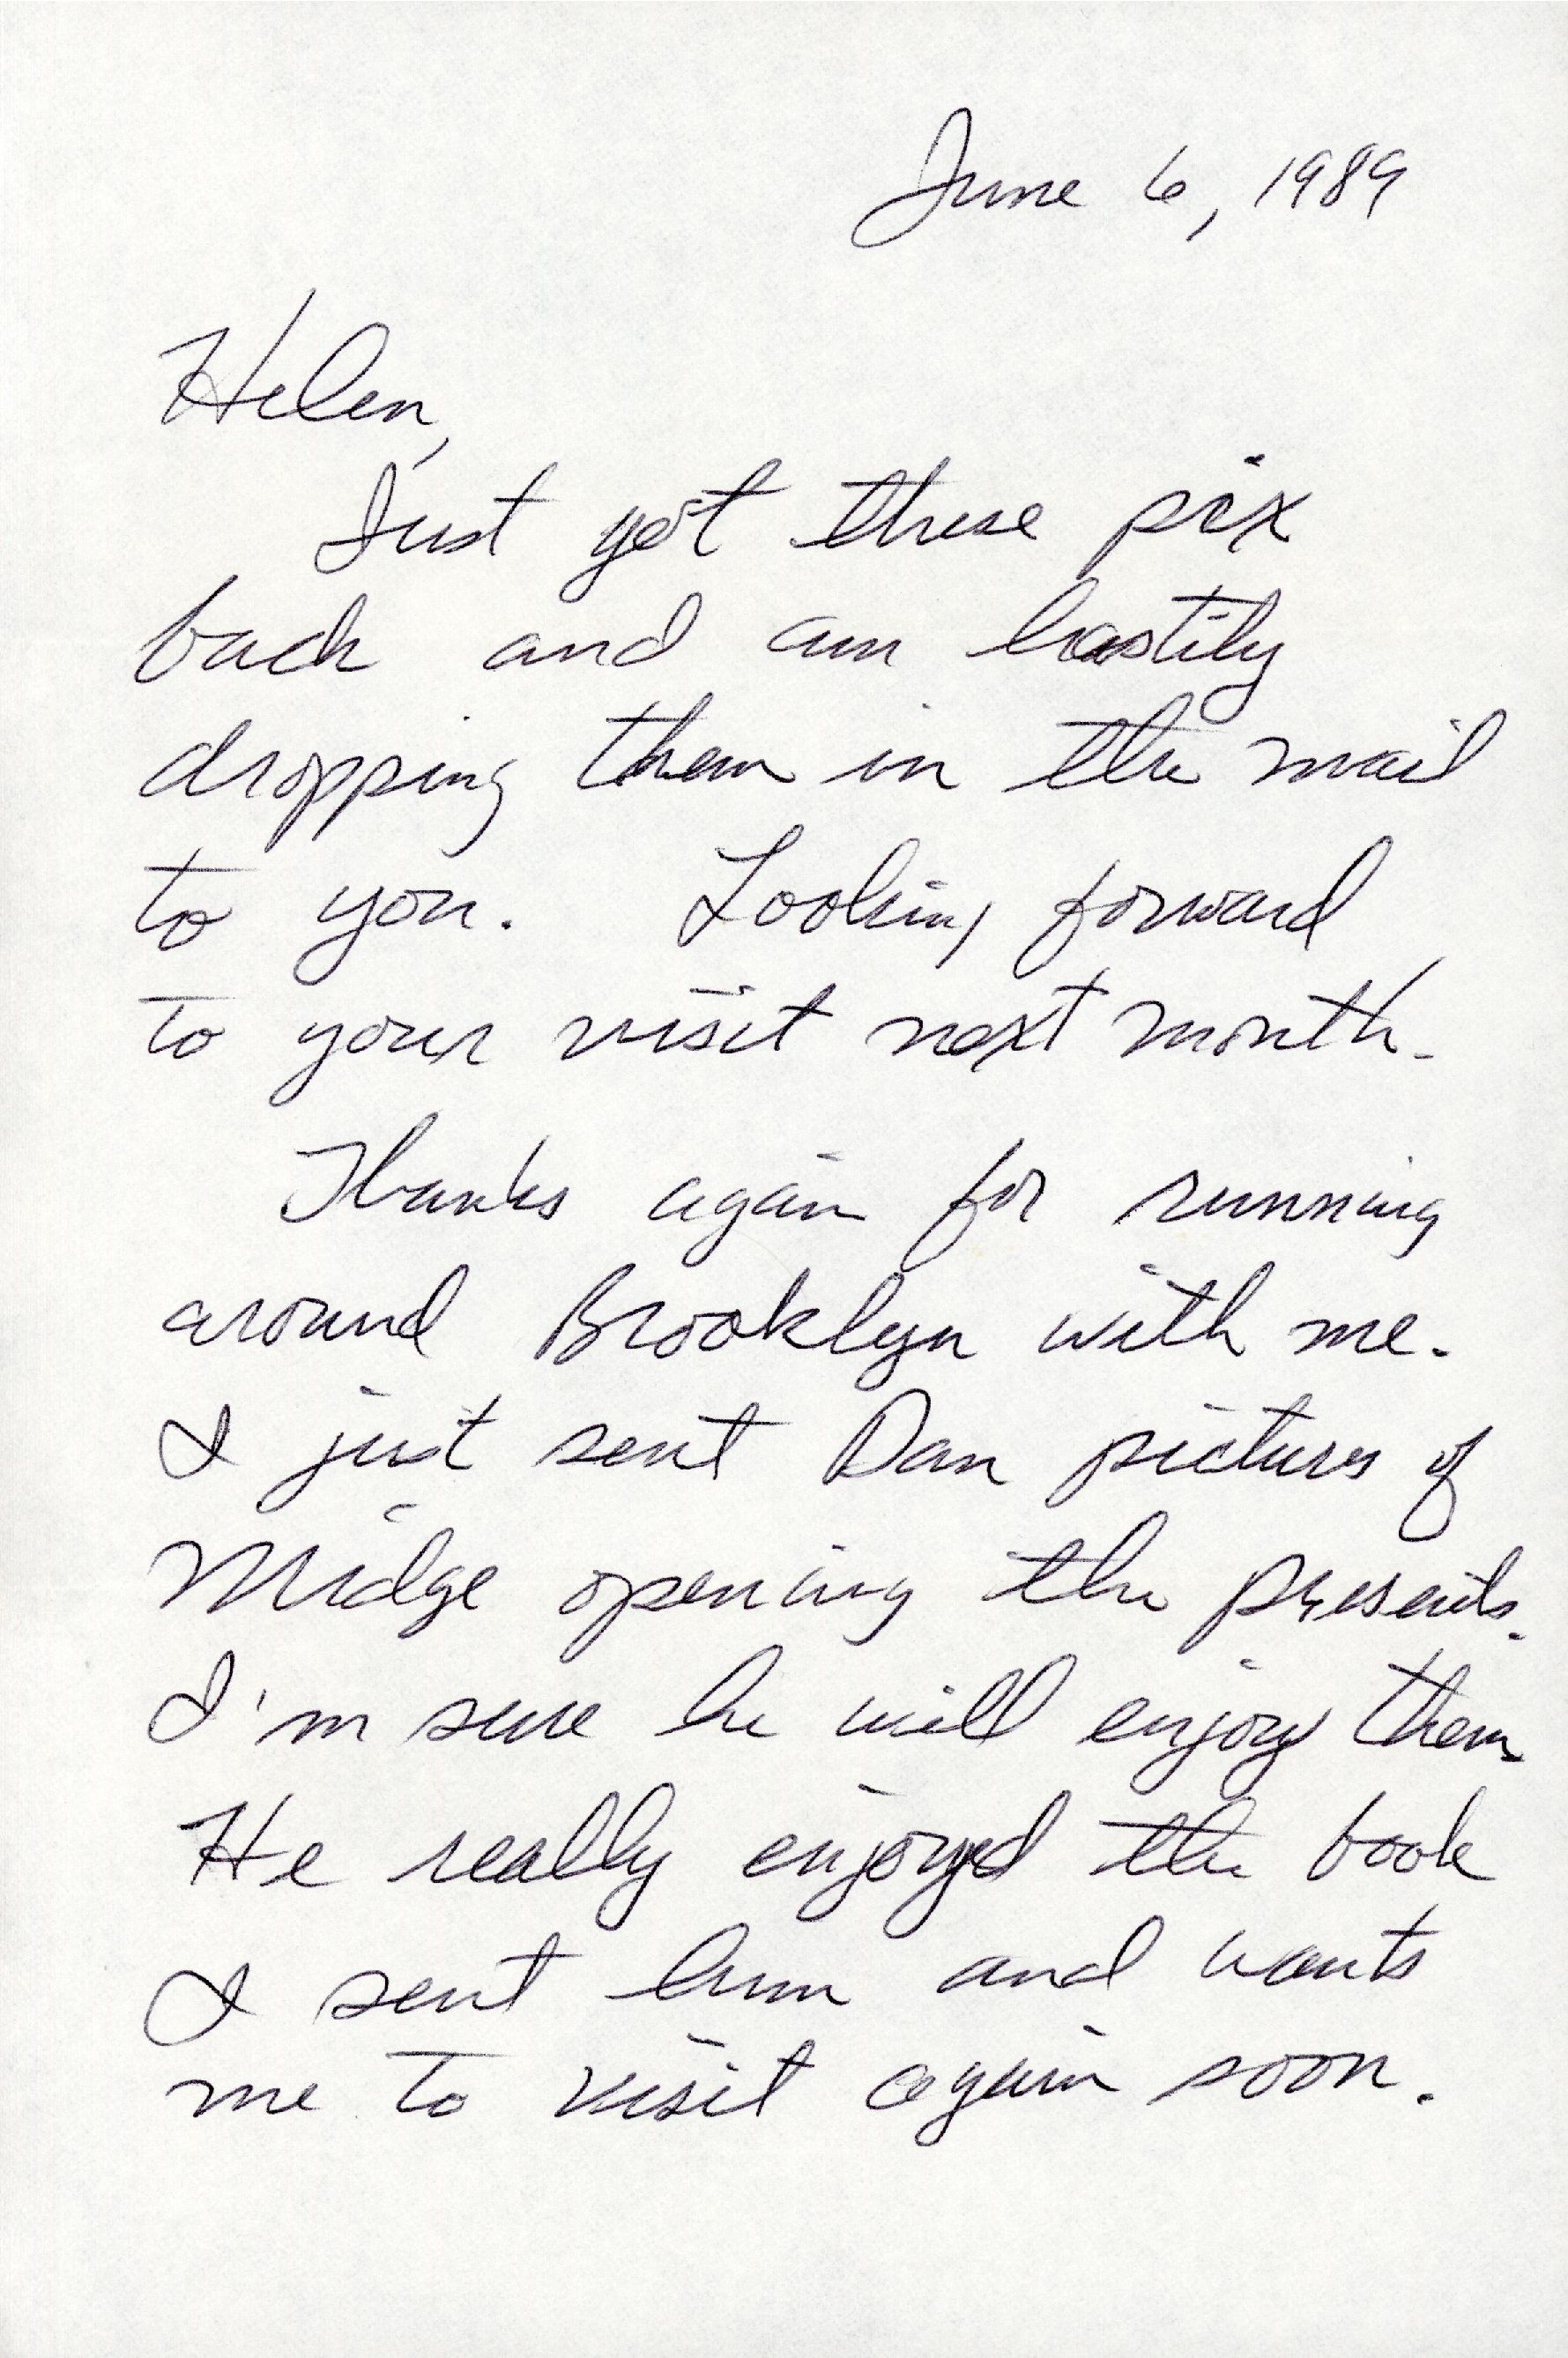 June 6, 1989
Helen,
Just got these pix
back and am hastily
dropping them in the mail
to you. Looking forward
to your visit next month.
Thanks again for running
around Brooklyn with me.
I just sent Dan pictures of
Midge opening the presents.
I'm sure he will enjoy them
He really enjoyed the book
I sent him and wants
me to visit again soon.